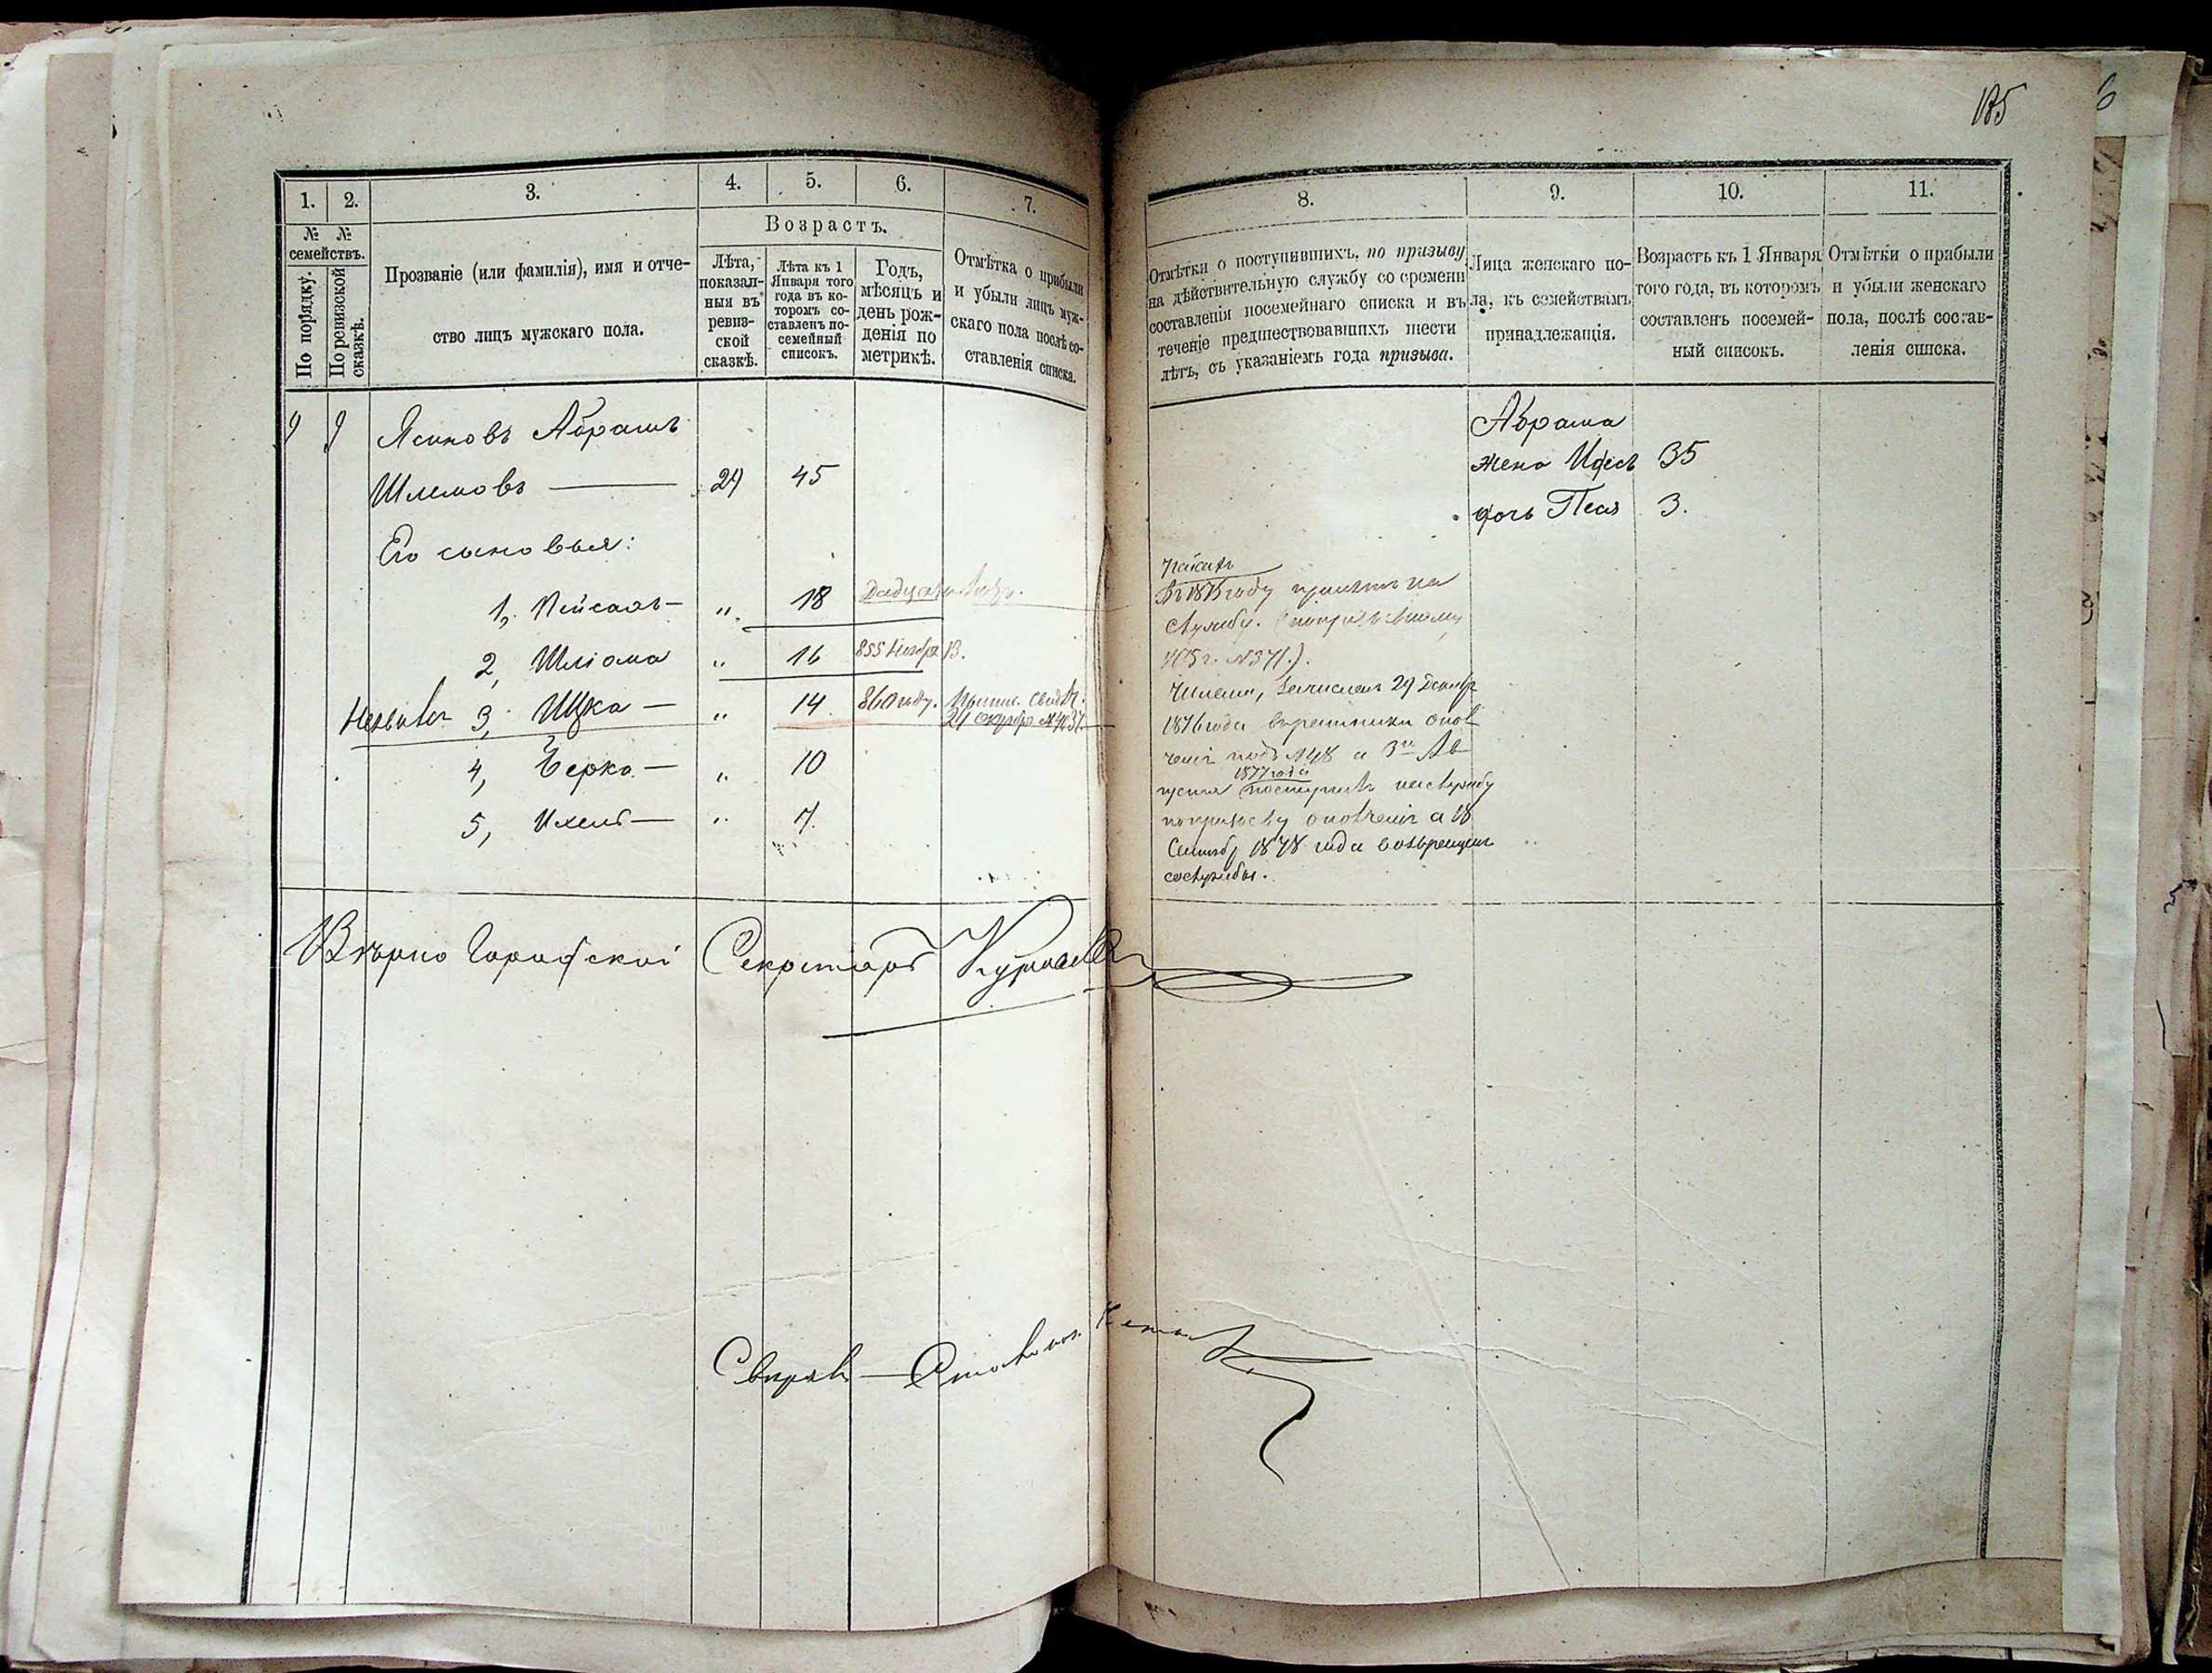 185
1. 2. 3. 4. 5. 6. 7.
№ № семействъ.
По порядку.
По ревизской сказкѣ.
Прозваніе (или фамилія), имя и отче-
ство лицъ мужскаго пола.
Возрастъ.
Лѣта,
показан-
ныя въ
ревиз-
ской
сказкѣ.
Лѣта къ 1
Января того
года въ ко-
торомъ со-
ставленъ по-
семейный
списокъ.
Годъ,
мѣсяцъ и
день рож-
денія по
метрикѣ.
Отмѣтка о прибыли
и убыли лицъ муж-
скаго пола послѣ со-
ставленія списка.
Ясиновъ Абрамъ
Шлемовъ — 24 45
Его сыновья:
1, Пейсахъ — „ 18
2, Шліома „ 16 855 Ноября 13.
3, Ицка — „ 14 860 году.
4, Берко — „ 10
5, Ихель — „ 7.
Вѣрно Городской Секретарь
8. 9. 10. 11.
Отмѣтки о поступившихъ, по призыву
на дѣйствительную службу со времени
составленія посемейнаго списка и въ
теченіе предшествовавшихъ шести
лѣтъ, съ указаніемъ года призыва.
Лица женскаго по-
ла, къ семействамъ
принадлежащія.
Возрастъ къ 1 Января
того года, въ которомъ
составленъ посемей-
ный списокъ.
Отмѣтки о прибыли
и убыли женскаго
пола, послѣ состав-
ленія списка.
Абрама
жена Идесъ 35
дочь Песя 3.
Въ 1875 году принятъ на
службу.
№371.).
Шлема, зачисленъ 29 Декабр
1876 года въ ратники опол
ченія подъ №48 а 3го Ав
1877 года
густа поступилъ на службу
по призыву ополченія а 18
Сентяб 1878 года возвращенъ
со службы.